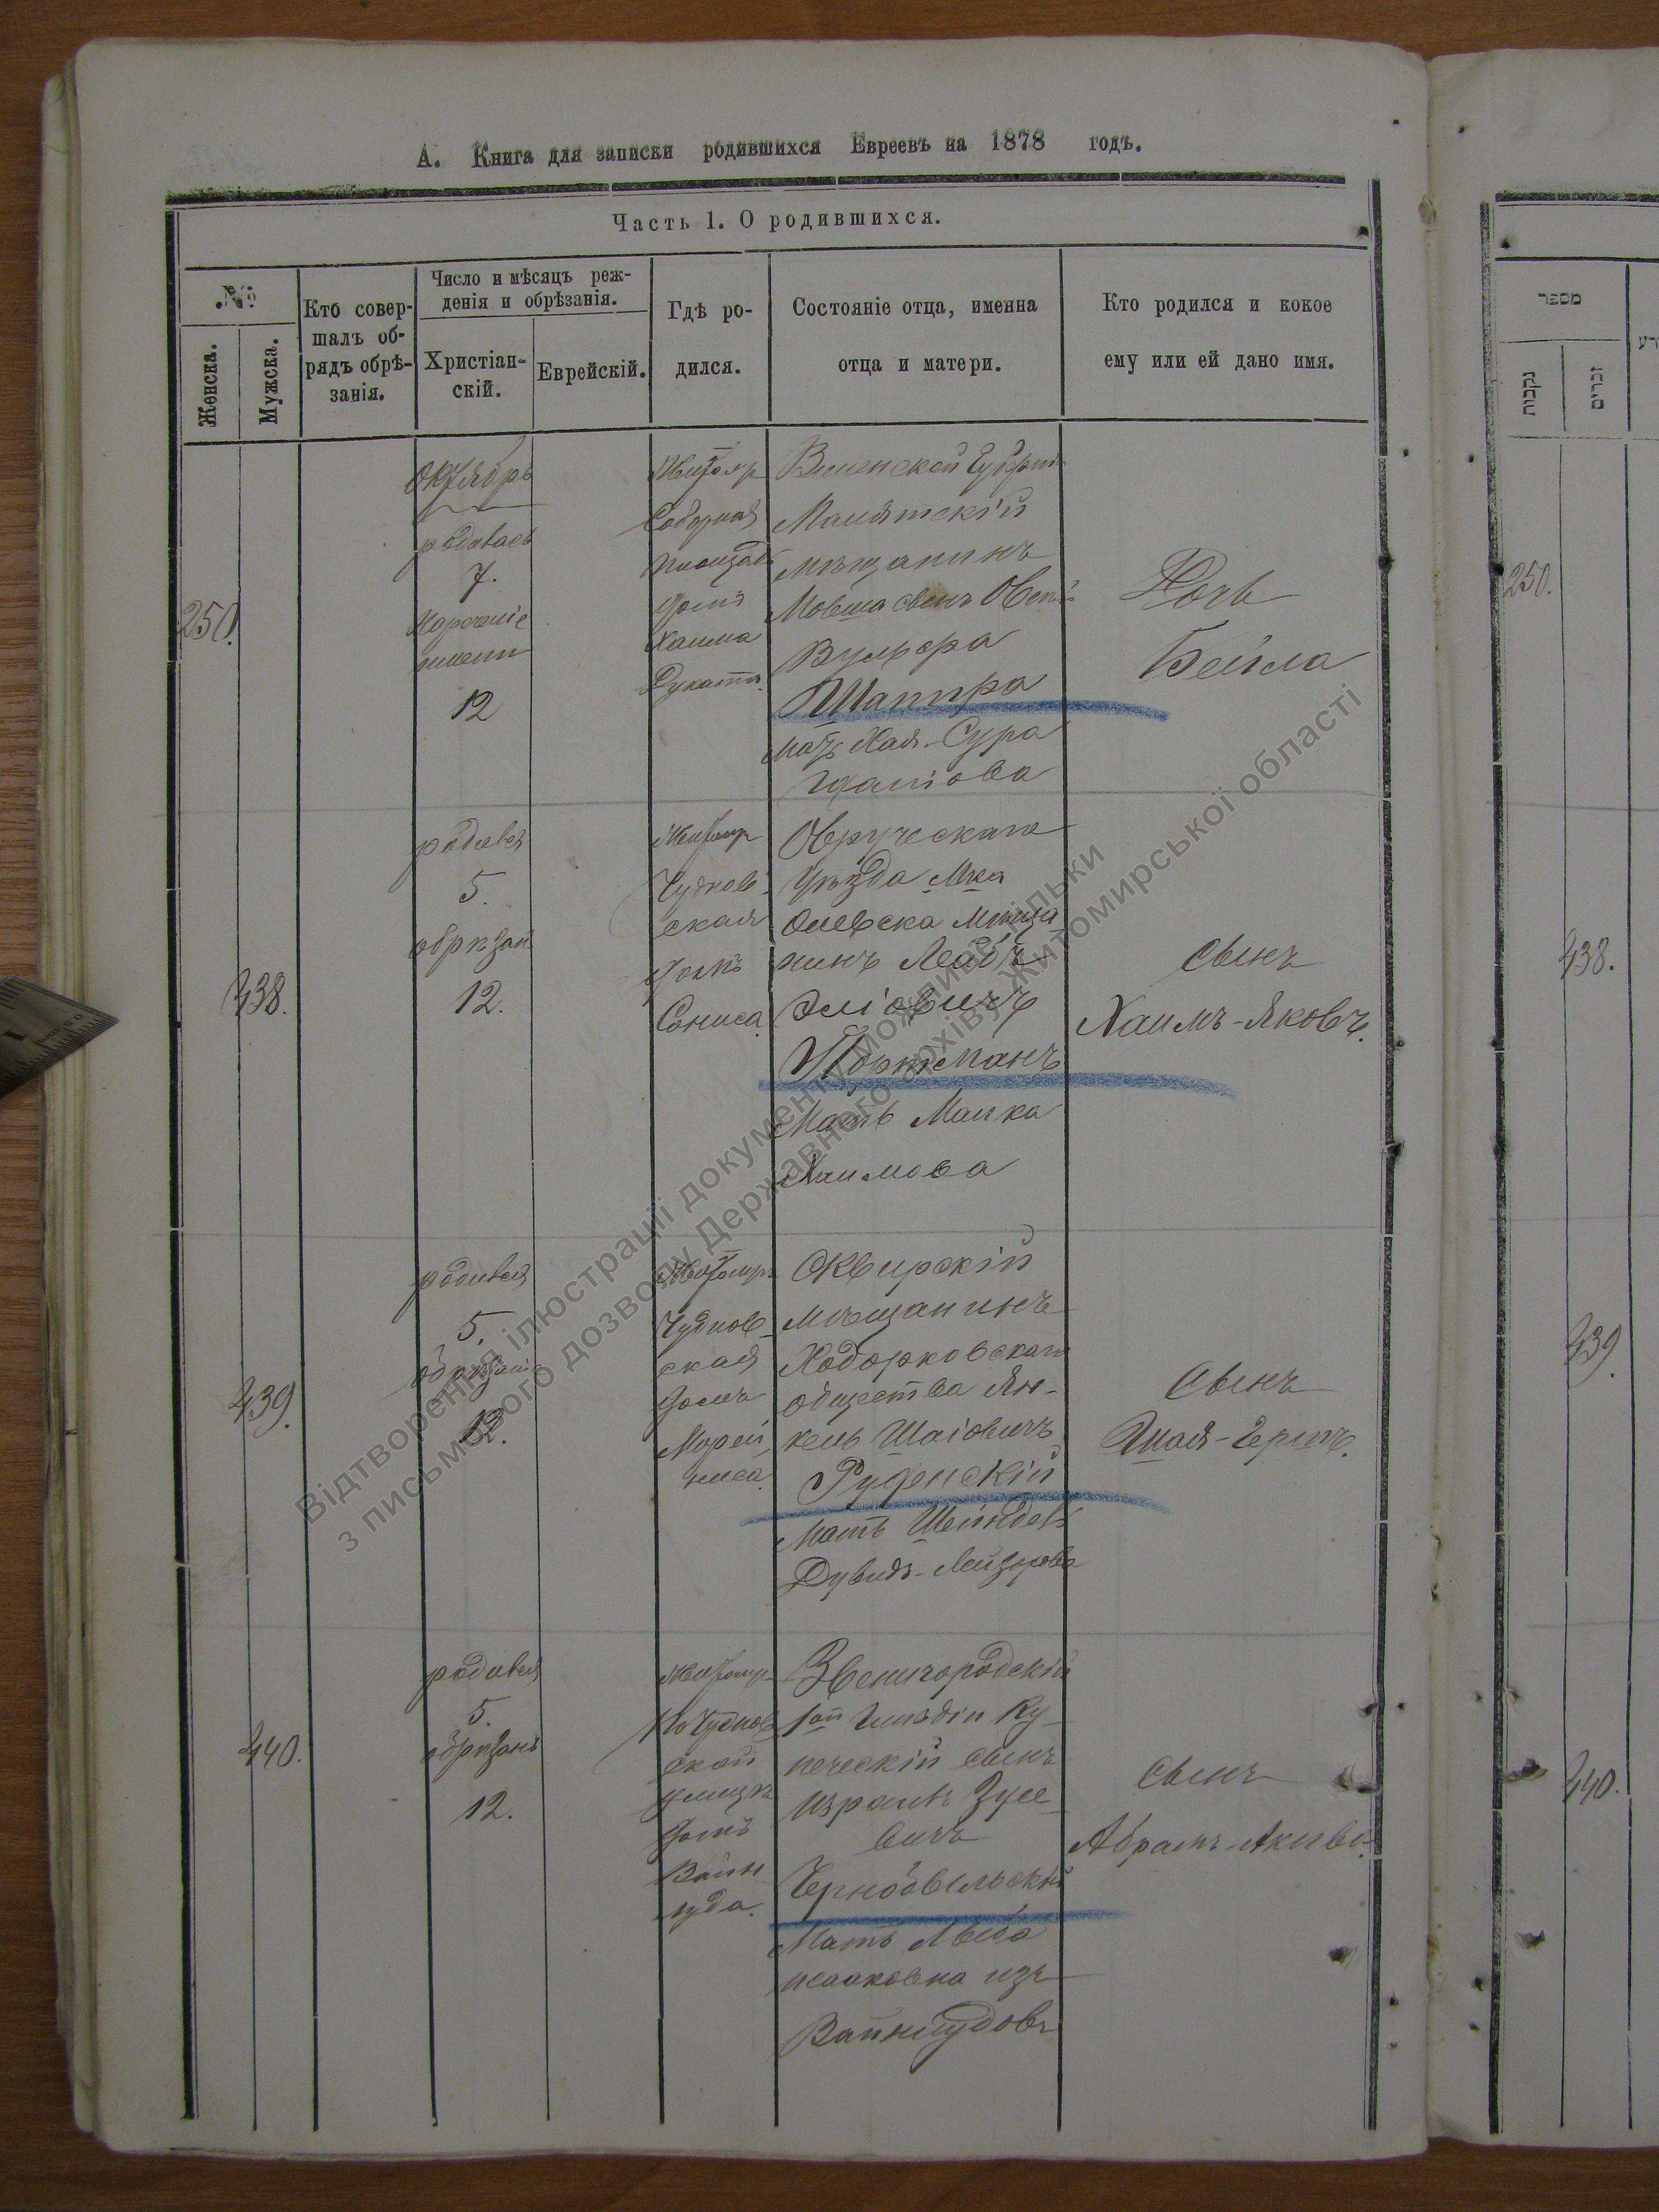 А. Книга для записки родившихся Евреевъ на 1878 годъ.
Часть 1. О родившихся.
№
Женска.
Мужска.
Кто совер-
шалъ об-
рядъ обрѣ-
занія.
Число и мѣсяцъ реж-
денія и обрѣзанія.
Христіан-
скій.
Еврейскій.
Гдѣ ро-
дился.
Состояніе отца, именна
отца и матери.
Кто родился и кокое
ему или ей дано имя.
250.
Октябрь
родилась
7.
Нареченіе
имени
12
Житомир
Соборная
площадь
домъ
Хаима
Виленской Губерніи
мѣщанинъ
Мовша
Вульфа
Шапира
Мать Хая-Сура
Дочь
Бейла
438.
родился
5.
обрѣзан
12.
Житомир
Чуднов-
ская
домъ
Овручскаго
Уѣзда М-ка
Олевска Мѣща-
нинъ Лейбъ
Эліовичъ
Портманъ
Мать Малка
Хаимова
Сынъ
Хаимъ-Яковъ.
439.
родился
5.
обрѣзанъ
12.
Житомиръ
Чуднов-
ская
домъ
Сквирскій
мѣщанинъ
Ходорковскаго
общества Ян-
кель Шаіовичъ
Руденскій
Мать
Дувидъ-Лейзорова
Сынъ
440.
родился
5.
обрѣзанъ
12.
Житомир
По Чуднов
ской
улицѣ
домъ
Вайн-
луда.
Звенигородскій
1ой Гильдіи Ку-
печескій сынъ
Израиль Зусе-
вичъ
Чернобыльскій
Мать
Исааковна изъ
Вайнлудовъ
Сынъ
Абрамъ-Акива.
מספר
נקבות
זכרים
250.
438.
439.
440.
Відтворення ілюстрації документу можливе тільки
з письмового дозволу Державного архіву Житомирської області